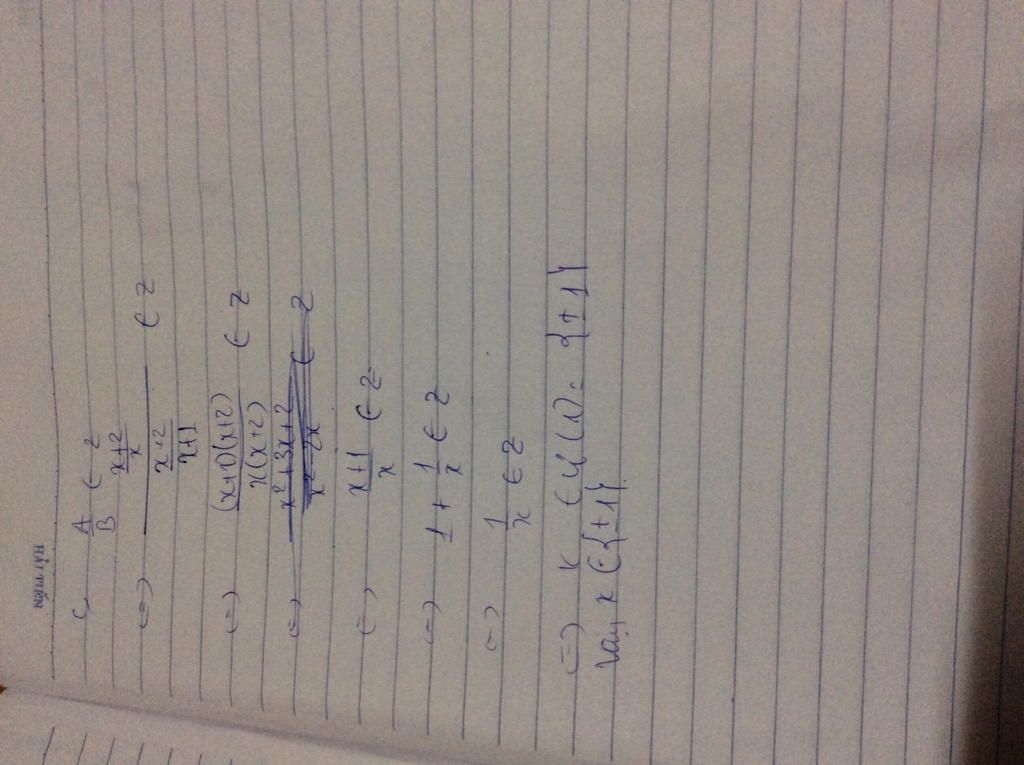 HẢI TIẾN
c, A/B ∈ Z
<=> ((x+2)/x)/((x+2)/(x+1)) ∈ Z
<=> ((x+1)(x+2))/(x(x+2)) ∈ Z
<=> (x²+3x+2)/(x²+2x) ∈ Z
<=> (x+1)/x ∈ Z
<=> 1 + 1/x ∈ Z
<=> 1/x ∈ Z
<=> x ∈ Ư(1) = {±1}
Vậy x ∈ {±1}